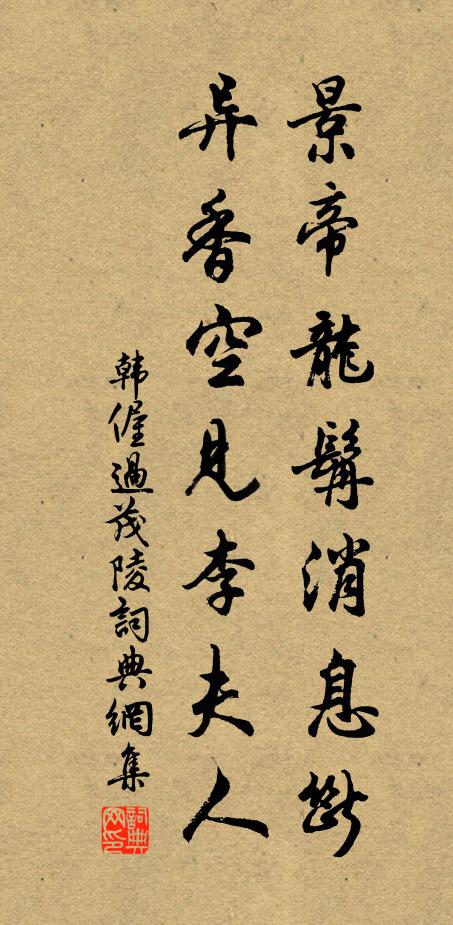 景帝龍髯消息斷
异香空見李夫人
韩偓過茂陵詞典網集
詞典網印